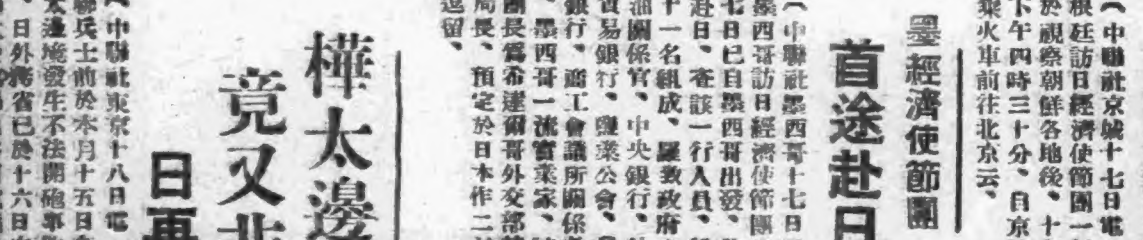 （中聯社京城十七日電
根廷訪日經濟使節團一
於視察朝鮮各地後、十
下午四時三十分、自京
乘火車前往北京云、
墨經濟使節團
首途赴日
（中聯社墨西哥十七日
墨西哥訪日經濟使節團
七日已自墨西哥出發、
赴日、查該一行人員、
十一名組成、羅致政府
油關係官、中央銀行、
貿易銀行、鹽業公會、
銀行、商工會議所關係
、墨西哥一流實業家、
團長爲希達爾哥外交部
局長、預定於日本作二
逗留、
樺太邊
竟又非
日再
（中聯社東京十八日電
聯兵士前於本月十五日
太邊境發生不法開砲事
日外務省已於十六日